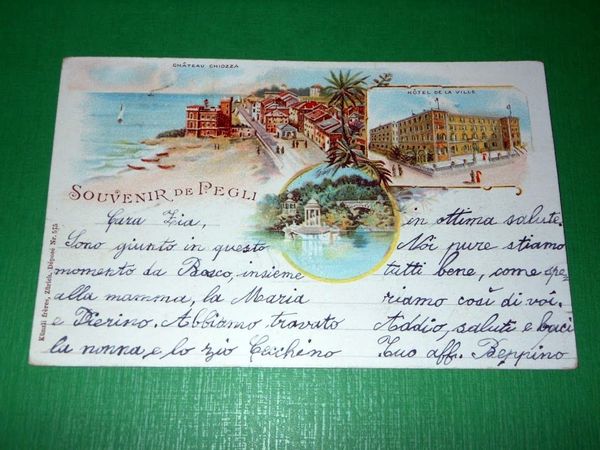 CHÂTEAU CHIOZZA
HÔTEL DE LA VILLE
SOUVENIR DE PEGLI
Cara Zia,
Sono giunto in questo
momento da Bosco, insieme
alla mamma, la Maria
e Pierino. Abbiamo trovato
la nonna e lo zio Cecchino
in ottima salute.
Noi pure stiamo
tutti bene, come spe,
riamo così di voi.
Addio, saluti e baci
Tuo aff. Beppino
Künzli frères, Zürich, Déposé Nr. 515